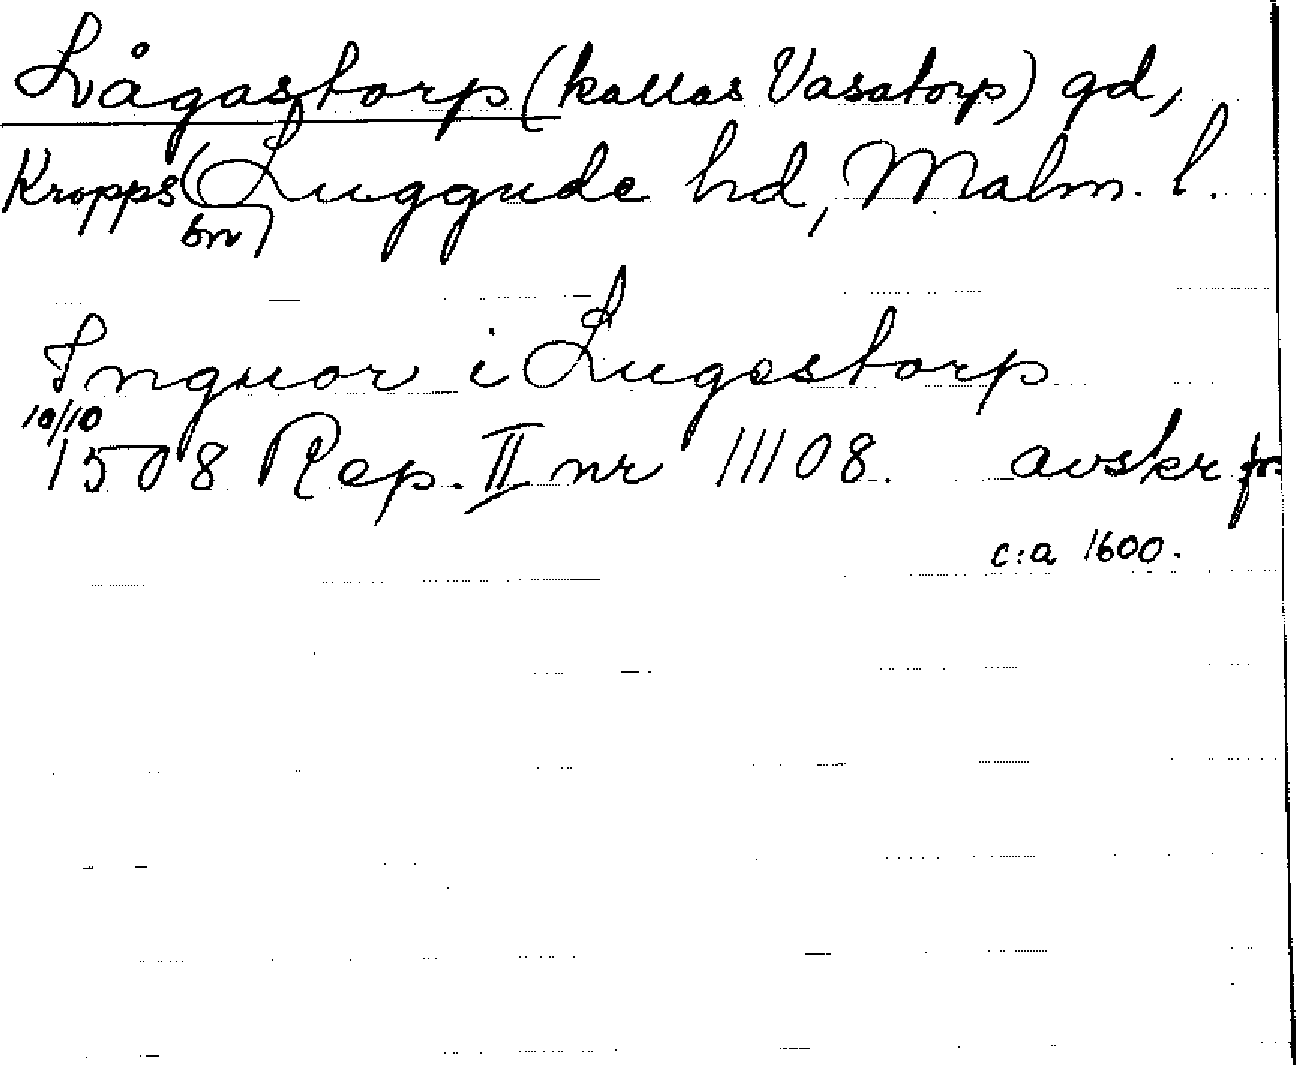 Lågastorp (kallas Vasatorp) gd,
Kropps sn Luggude hd, Malm. l.
Inguor i Lugestorp
10/10
1508 Rep. II nr 11108. avskr fr.
c:a 1600.